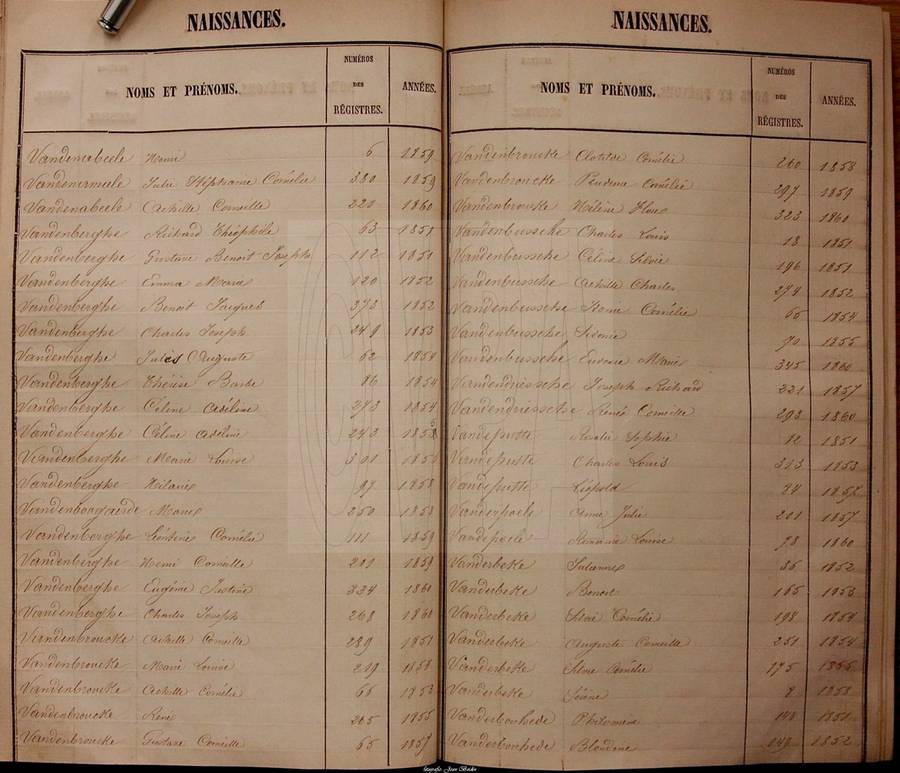 NAISSANCES.
NOMS ET PRÉNOMS. NUMÉROS DES RÉGISTRES. ANNÉES.
Vandenabeele Henri 6 1859
Vandenameele Julie Stéphanie Cornélie 380 1859
Vandenabeele Achille Corneille 220 1860
Vandenberghe Richard Théophile 63 1851
Vandenberghe Gustave Benoit Joseph 112 1851
Vandenberghe Emma Marie 120 1852
Vandenberghe Benoit Jacques 373 1852
Vandenberghe Charles Joseph 249 1853
Vandenberghe Jules Auguste 62 1854
Vandenberghe Thérèse Barbe 86 1854
Vandenberghe Céline Adéline 273 1854
Vandenberghe Céline Adéline 243 1855
Vandenberghe Marie Louise 301
Vandenberghe Mélanie 97 1858
Marie 250 1858
Vandenberghe Léontine Cornélie 111 1859
Vandenberghe Henri Corneille 201 1859
Vandenberghe Eugénie Justine 334 1860
Vandenberghe Charles Joseph 268 1860
Vandenbroucke Achille Corneille 289 1851
Vandenbroucke Marie Louise 219
Vandenbroucke Achille Cornélie 66 1853
Vandenbroucke René 265 1855
Vandenbroucke Gustave Corneille 65 1857
NAISSANCES.
NOMS ET PRÉNOMS. NUMÉROS DES RÉGISTRES. ANNÉES.
Vandenbroucke Clotilde Cornélie 260 1858
Vandenbroucke Prudence Cornélie 297 1859
Vandenbroucke Hélène Flore 323 1860
Vandenbussche Charles Louis 18 1851
Vandenbussche Céline Silvie 196 1851
Vandenbussche Achille Charles 274 1852
Vandenbussche Cornélie 66 1854
Vandenbussche Sidonie 70 1855
Vandenbussche Eugénie Marie 345 1860
Vandendriessche Joseph Richard 221 1857
Vandendriessche Renée Corneille 293 1860
Vandeputte Rosalie Sophie 12 1851
Vandeputte Charles Louis 313 1853
Vandeputte Léopold 24 1857
Vandepoele Anne Julie 201 1857
Vandepoele Louise 78 1860
Vanderbeke Julienne 36 1852
Vanderbeke Benoit 165 1853
Vanderbeke Cornélie 198 1854
Vanderbeke Auguste Corneille 251 1854
Vanderbeke Silvie Amélie 175 1856
Vanderbeke 8 1858
Philomène 148 1851
Blondine 149 1852